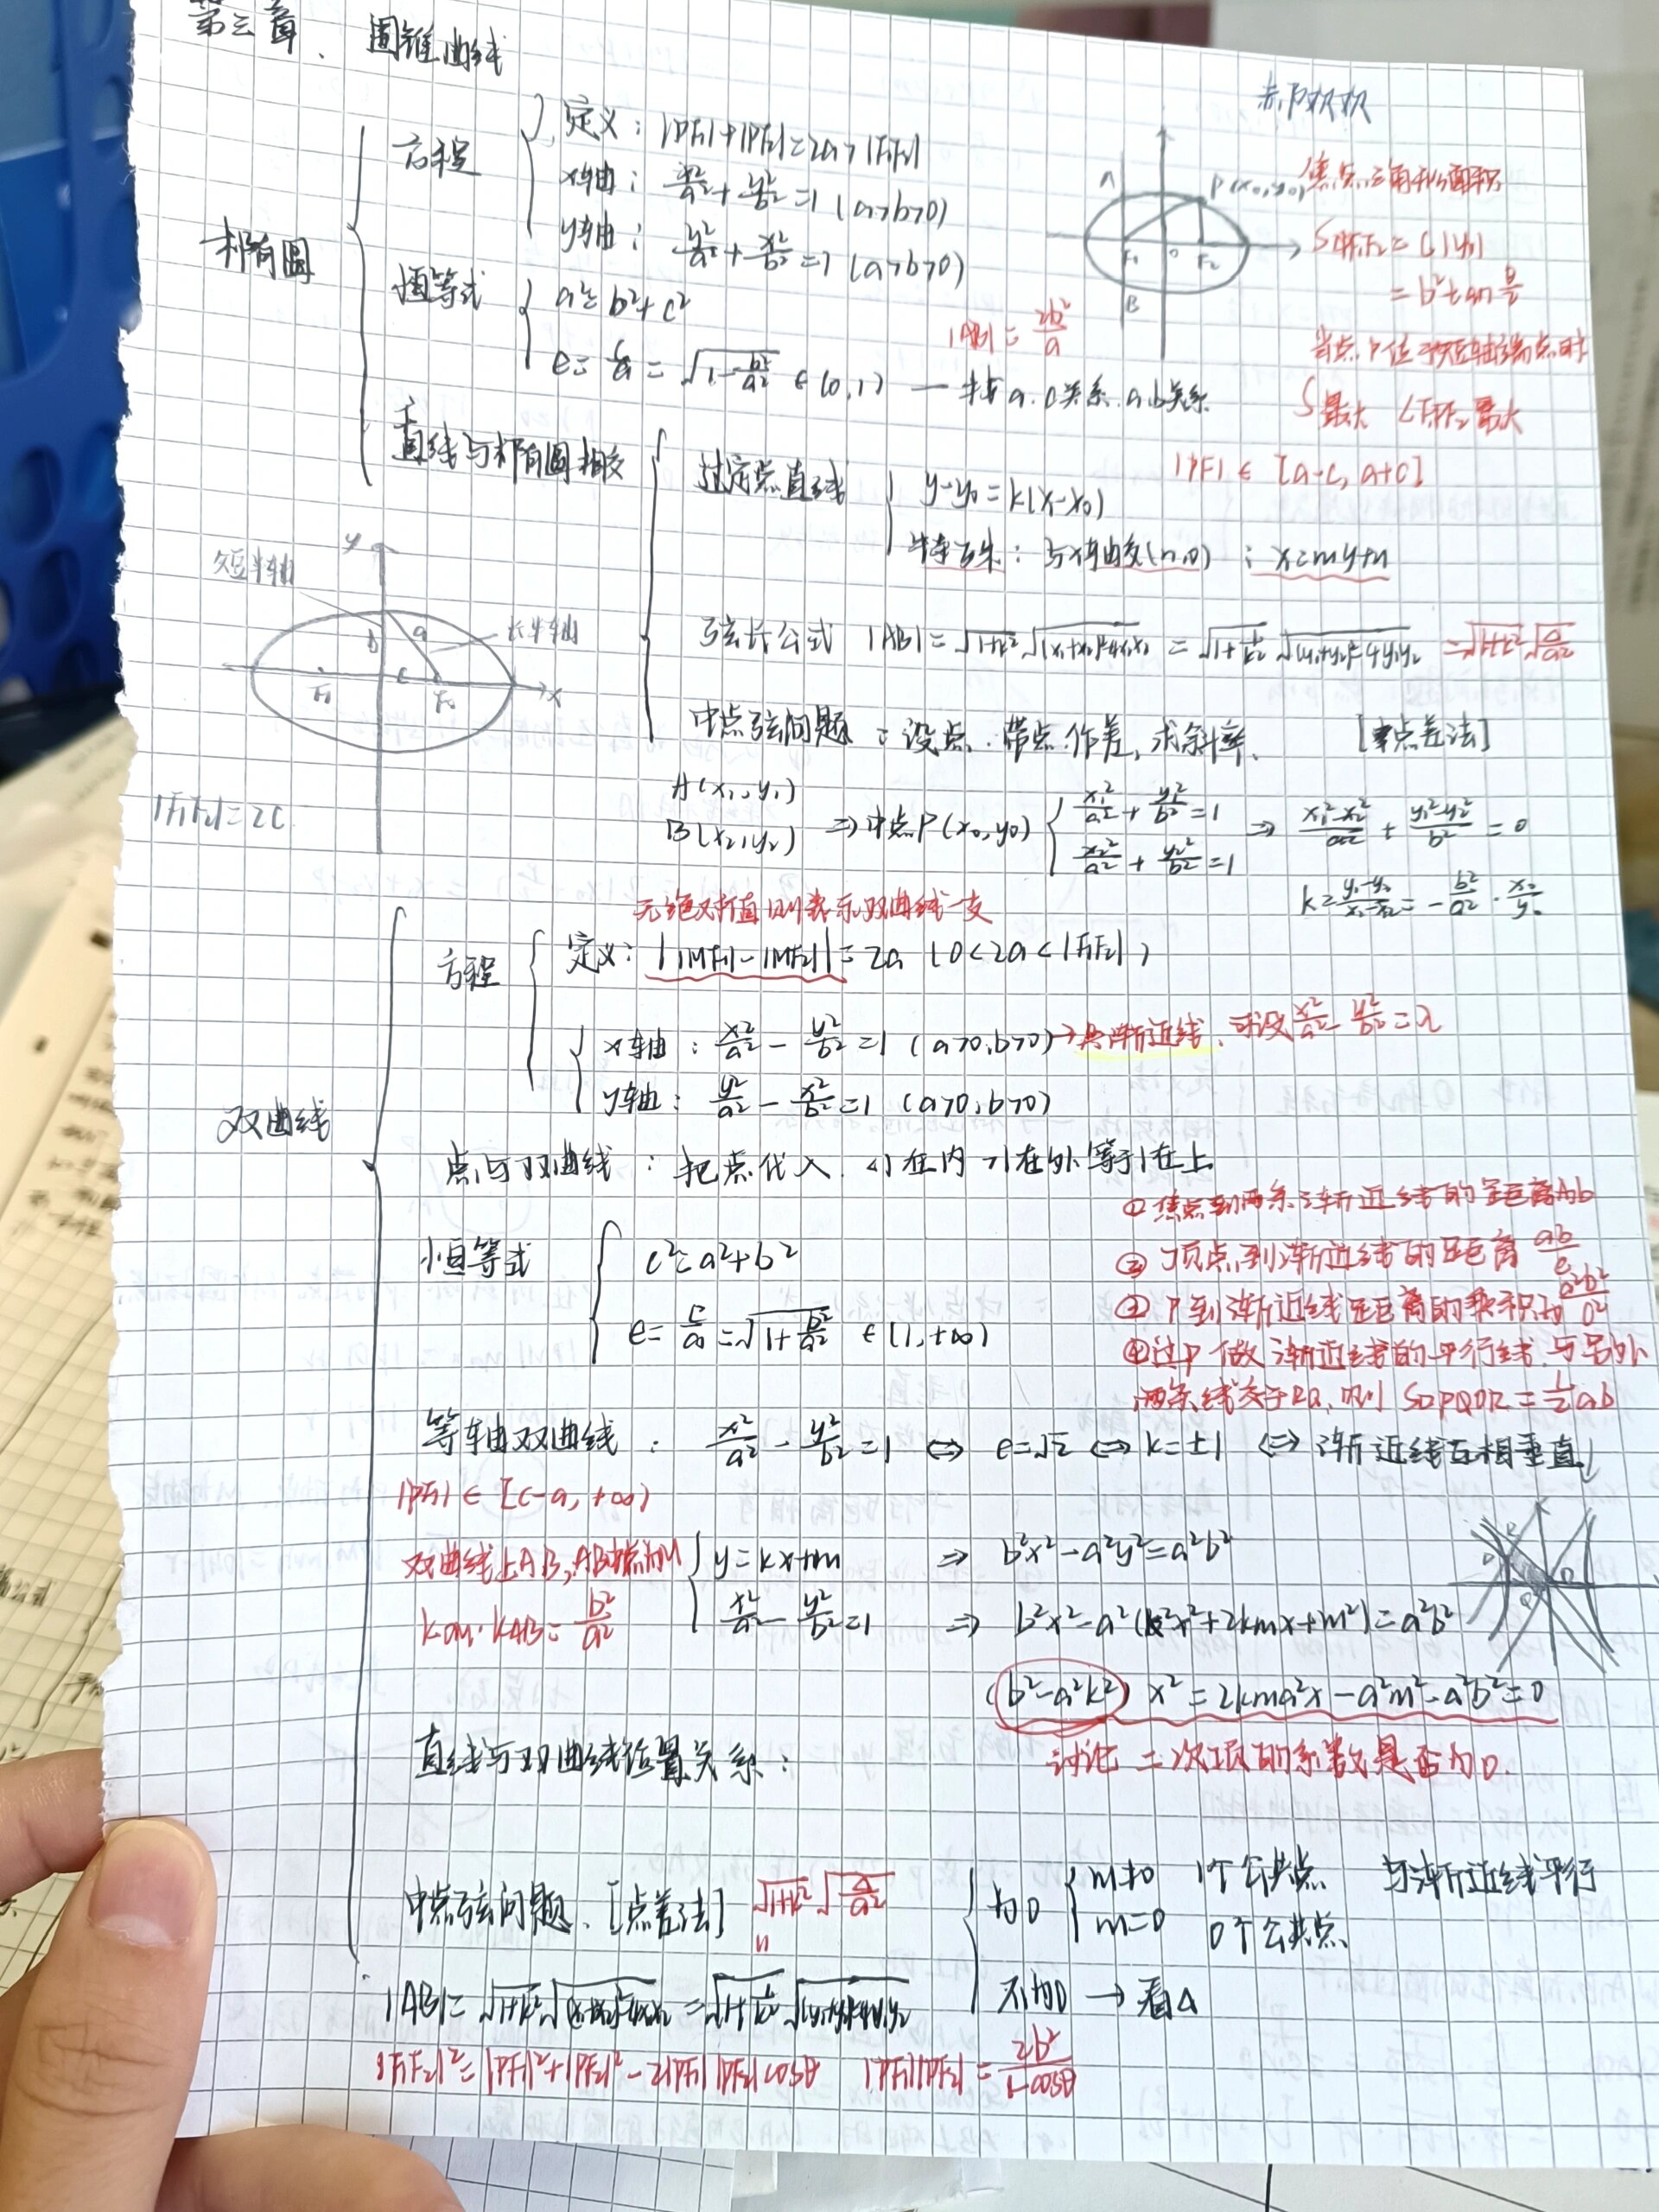 第三章、圆锥曲线
椭圆
方程
定义：|PF₁|+|PF₂|=2a>|F₁F₂|
x轴：x²/a²+y²/b²=1 (a>b>0)
y轴：y²/a²+x²/b²=1 (a>b>0)
A
P(x₀,y₀)
F₁ O F₂
B
焦点三角形面积
S△PF₁F₂=c|y₀|
=b²tanθ/2
当点P位于短轴端点时
S最大 ∠F₁PF₂最大
|PF₁|∈[a-c,a+c]
恒等式
a²=b²+c²
e=c/a=√(1-b²/a²)∈(0,1) —找a.c关系.a.b关系
|AB|=2b²/a
直线与椭圆相交
过定点直线
y-y₀=k(x-x₀)
特别地：与x轴交(n,0)：x=my+n
弦长公式 |AB|=√(1+k²)√((x₁+x₂)²-4x₁x₂)=√(1+1/k²)√((y₁+y₂)²-4y₁y₂)=√(1+k²)√(Δ/a²)
中点弦问题：设点.带点.作差，求斜率. [点差法]
A(x₁,y₁)
B(x₂,y₂) ⇒中点P(x₀,y₀)
x₁²/a²+y₁²/b²=1
x₂²/a²+y₂²/b²=1
⇒ (x₁²-x₂²)/a²+(y₁²-y₂²)/b²=0
k=(y₁-y₂)/(x₁-x₂)=-b²/a²·x₀/y₀
短半轴
y
b
a
长半轴
F₁ c F₂ x
|F₁F₂|=2c
双曲线
无绝对值则表示双曲线一支
方程
定义：||MF₁|-|MF₂||=2a (0<2a<|F₁F₂|)
x轴：x²/a²-y²/b²=1 (a>0,b>0)→共渐近线，可设x²/a²-y²/b²=λ
y轴：y²/a²-x²/b²=1 (a>0,b>0)
点与双曲线：把点代入.<1在内 >1在外 等于1在上
恒等式
c²=a²+b²
e=c/a=√(1+b²/a²)∈(1,+∞)
①焦点到两条渐近线的距离为b
②顶点到渐近线的距离ab/c
③P到渐近线距离的乘积为a²b²/c²
④过P做渐近线的平行线，与另外
两条线交于RQ，则 S▱PQOR=1/2ab
等轴双曲线：x²/a²-y²/b²=1 ⇔ e=√2 ⇔ k=±1 ⇔ 渐近线互相垂直
|PF₁|∈[c-a,+∞)
双曲线上A B，AB中点为M
kom·kAB=b²/a²
y=kx+m
x²/a²-y²/b²=1
⇒ b²x²-a²y²=a²b²
⇒ b²x²-a²(k²x²+2kmx+m²)=a²b²
(b²-a²k²)x²=2kma²x-a²m²-a²b²=0
讨论二次项的系数是否为0.
直线与双曲线位置关系：
为0
m≠0 1个公共点 与渐近线平行
m=0 0个公共点
不为0 →看Δ
中点弦问题、[点差法] √(1+k²)√(Δ/a²)
|AB|=√(1+k²)√((x₁+x₂)²-4x₁x₂)=√(1+1/k²)√((y₁+y₂)²-4y₁y₂)
|F₁F₂|²=|PF₁|²+|PF₂|²-2|PF₁||PF₂|cosθ |PF₁||PF₂|=2b²/(1-cosθ)